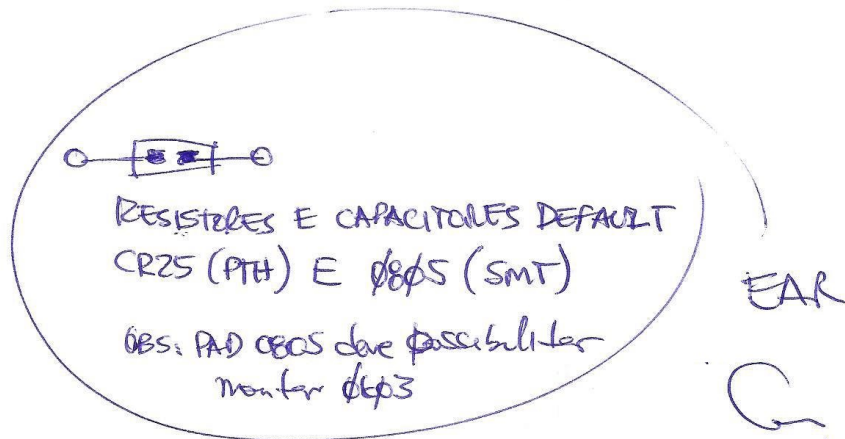 RESISTORES E CAPACITORES DEFAULT
CR25 (PTH) E 0805 (SMT)
OBS: PAD 0805 deve possibilitar
montar 0603
EAR